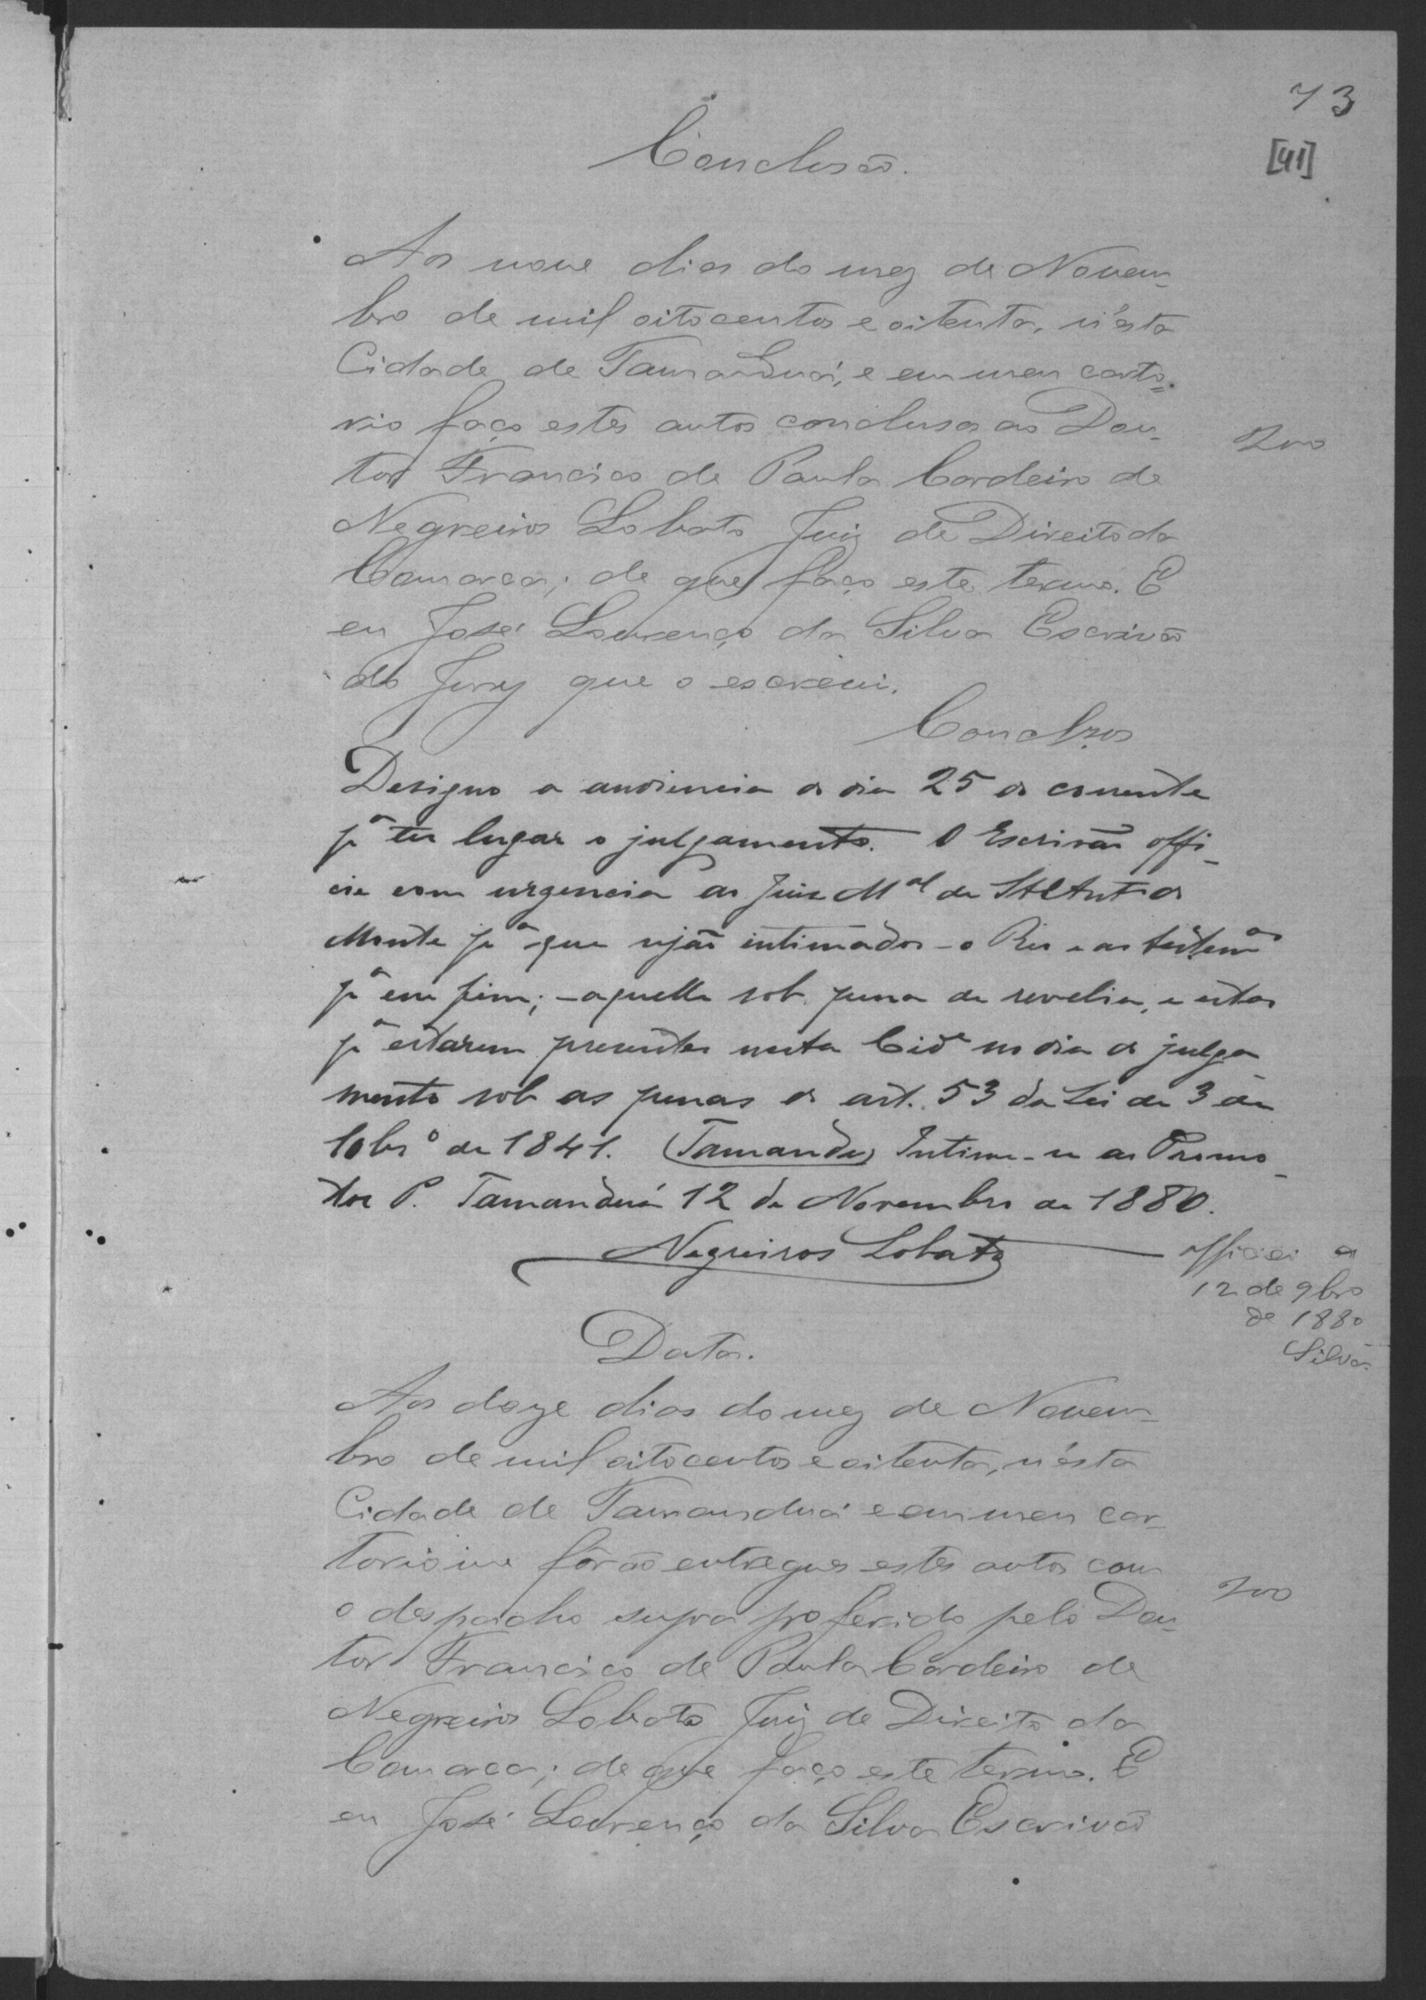 73
[41]
Conclusão.
Aos nove dias do mez de Novem-
bro de mil oitocentos e oitenta, n'esta
Cidade de Tamanduá, e em meu carto=
rio faço estes autos conclusos ao Dou-
200
tor Francisco de Paula Cordeiro de
Negreiros Lobato Juiz de Direito da
Comarca; de que faço este termo. E
eu José Lourenço da Silva Escrivão
do Jury que o escrevi.
Conclsos
Designo a audiencia do dia 25 do corrente
pª ter lugar o julgamento. O Escrivão offi-
cie com urgencia ao Juiz Mal de Sto Antº do
Monte pª que sejão intimados - o Reo e as testemªs
pª em fim; - aquelle sob pena de revelia, e estas
pª estarem presentes nesta Cidᵉ no dia do julga-
mento sob as penas do art. 53 da Lei de 3 de
10brº de 1841. (Tamandu) Intime-se ao Promo-
tor P. Tamanduá 12 de Novembro de 1880.
Negreiros Lobato
officiei a
12 de 9bro
de 1880
Silva
Data.
Aos doze dias do mez de Novem-
bro de mil oitocentos e oitenta, n'esta
Cidade de Tamanduá e em meu car-
torio me fôrão entregues estes autos com
o despacho supra proferido pelo Dou-
200
tor Francisco de Paula Cordeiro de
Negreiros Lobato Juiz de Direito da
Comarca; de que faço este termo. E
eu José Lourenço da Silva Escrivão